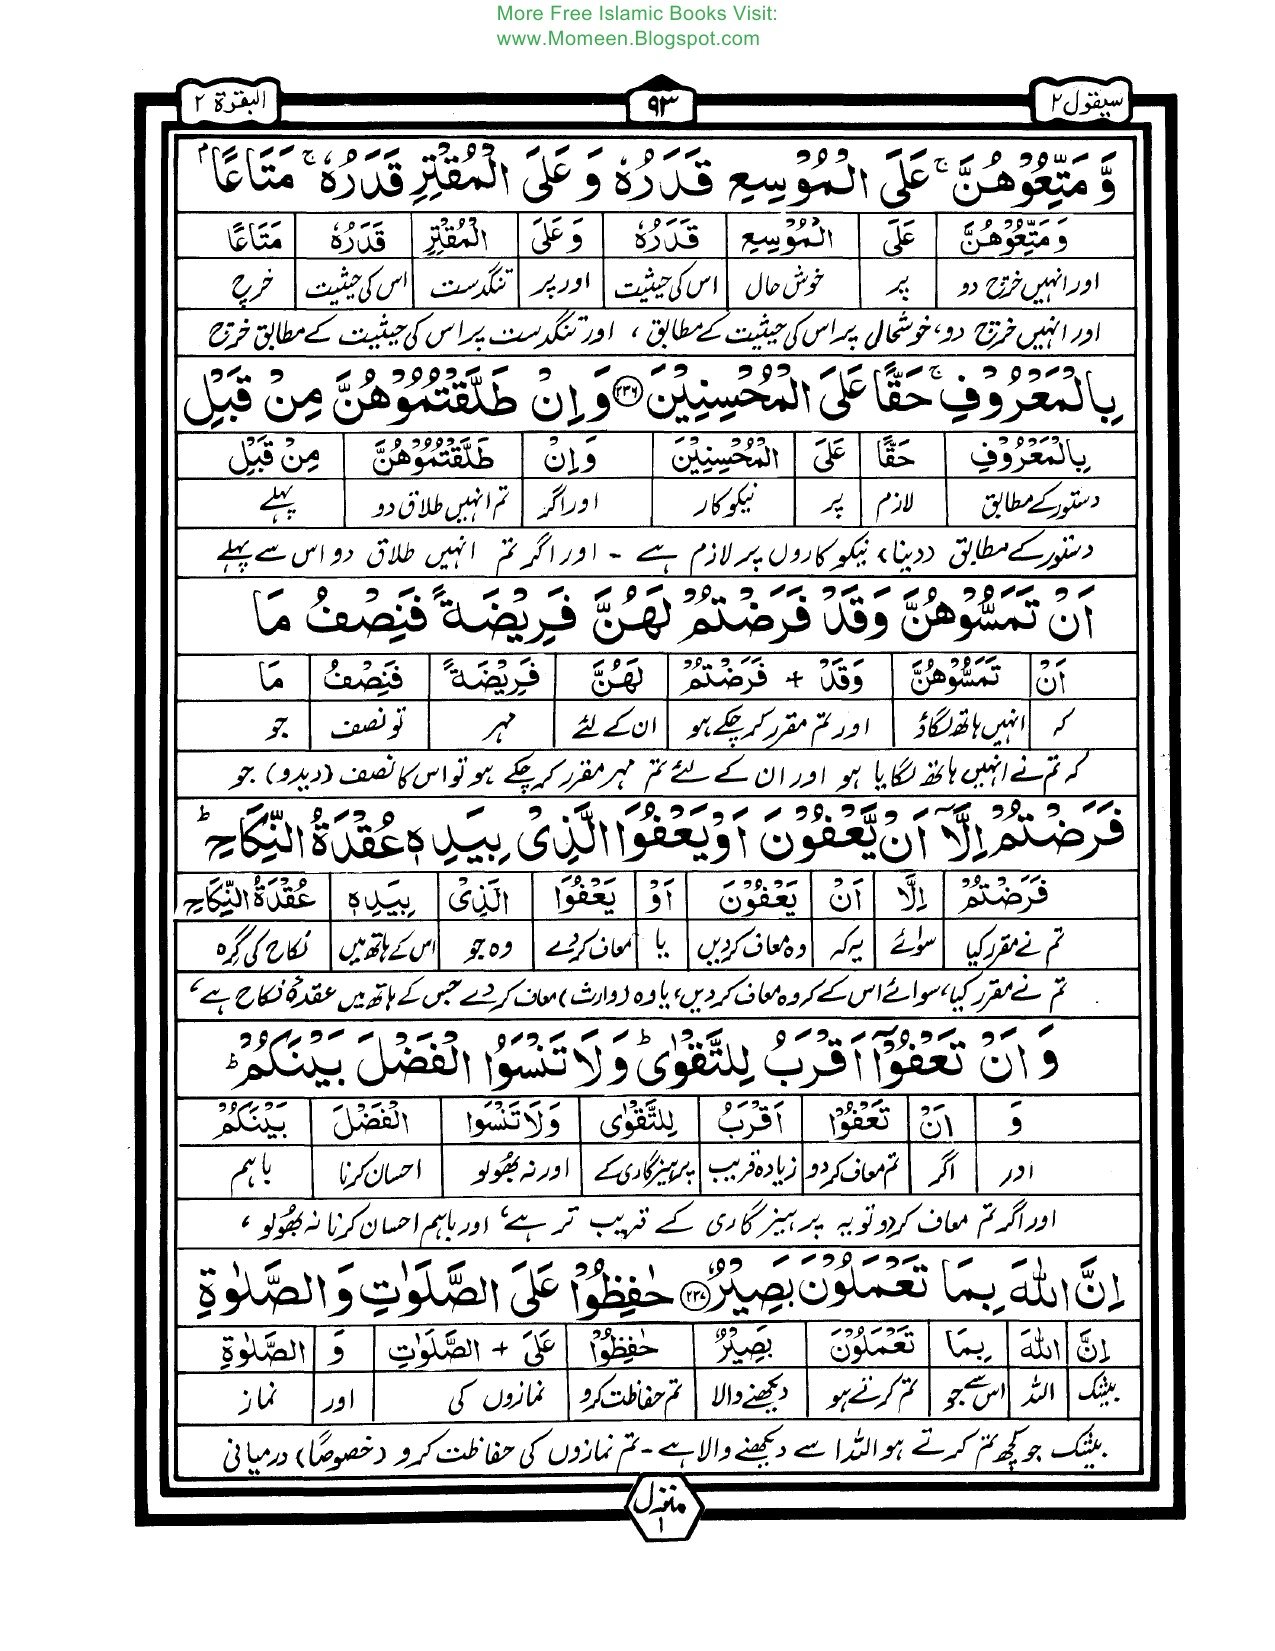 More Free Islamic Books Visit:
www.Momeen.Blogspot.com
سیقول ۲ ۹۳ البقرة ۲
وَّ مَتِّعُوْهُنَّ ۚ عَلَى الْمُوْسِعِ قَدَرُهٗ وَ عَلَى الْمُقْتِرِ قَدَرُهٗ ۚ مَتَاعًۢا
وَمَتِّعُوْهُنَّ عَلَى الْمُوْسِعِ قَدَرُهٗ وَعَلَى الْمُقْتِرِ قَدَرُهٗ مَتَاعًا
اور انہیں خرچ دو پر خوش حال اس کی حیثیت اور پر تنگدست اس کی حیثیت خرچ
اور انہیں خرچ دو، خوشحال پر اس کی حیثیت کے مطابق ، اور تنگدست پر اس کی حیثیت کے مطابق خرچ
بِالْمَعْرُوْفِ ۚ حَقًّا عَلَى الْمُحْسِنِيْنَ ﴿۲۳۶﴾ وَ اِنْ طَلَّقْتُمُوْهُنَّ مِنْ قَبْلِ
بِالْمَعْرُوْفِ حَقًّا عَلَى الْمُحْسِنِيْنَ وَاِنْ طَلَّقْتُمُوْهُنَّ مِنْ قَبْلِ
دستور کے مطابق لازم پر نیکوکار اور اگر تم انہیں طلاق دو پہلے
دستور کے مطابق (دینا) نیکوکاروں پر لازم ہے - اور اگر تم انہیں طلاق دو اس سے پہلے
اَنْ تَمَسُّوْهُنَّ وَقَدْ فَرَضْتُمْ لَهُنَّ فَرِيْضَةً فَنِصْفُ مَا
اَنْ تَمَسُّوْهُنَّ وَقَدْ + فَرَضْتُمْ لَهُنَّ فَرِيْضَةً فَنِصْفُ مَا
کہ انہیں ہاتھ لگاؤ اور تم مقرر کر چکے ہو ان کے لئے مہر تو نصف جو
کہ تم نے انہیں ہاتھ لگایا ہو اور ان کے لئے تم مہر مقرر کر چکے ہو تو اس کا نصف (دیدو) جو
فَرَضْتُمْ اِلَّآ اَنْ يَّعْفُوْنَ اَوْ يَعْفُوَا الَّذِيْ بِيَدِهٖ عُقْدَةُ النِّكَاحِ ؕ
فَرَضْتُمْ اِلَّا اَنْ يَعْفُوْنَ اَوْ يَعْفُوَا الَّذِيْ بِيَدِهٖ عُقْدَةُ النِّكَاحِ
تم نے مقرر کیا سوائے یہ کہ وہ معاف کردیں یا معاف کردے وہ جو اس کے ہاتھ میں نکاح کی گرہ
تم نے مقرر کیا، سوائے اس کے کہ وہ معاف کردیں، یا وہ (وارث) معاف کردے جس کے ہاتھ میں عقدۂ نکاح ہے،
وَ اَنْ تَعْفُوْٓا اَقْرَبُ لِلتَّقْوٰى ؕ وَ لَا تَنْسَوُا الْفَضْلَ بَيْنَكُمْ ؕ
وَ اَنْ تَعْفُوْٓا اَقْرَبُ لِلتَّقْوٰى وَلَا تَنْسَوُا الْفَضْلَ بَيْنَكُمْ
اور اگر تم معاف کردو زیادہ قریب پرہیزگاری کے اور نہ بھولو احسان کرنا باہم
اور اگر تم معاف کردو تو یہ پرہیزگاری کے قریب تر ہے، اور باہم احسان کرنا نہ بھولو ،
اِنَّ اللّٰهَ بِمَا تَعْمَلُوْنَ بَصِيْرٌ ﴿۲۳۷﴾ حٰفِظُوْا عَلَى الصَّلَوٰتِ وَ الصَّلٰوةِ
اِنَّ اللّٰهَ بِمَا تَعْمَلُوْنَ بَصِيْرٌ حٰفِظُوْا عَلَى + الصَّلَوٰتِ وَ الصَّلٰوةِ
بیشک اللہ اس سے جو تم کرتے ہو دیکھنے والا تم حفاظت کرو نمازوں کی اور نماز
بیشک جو کچھ تم کرتے ہو اللہ اسے دیکھنے والا ہے - تم نمازوں کی حفاظت کرو (خصوصاً) درمیانی
منزل ۱